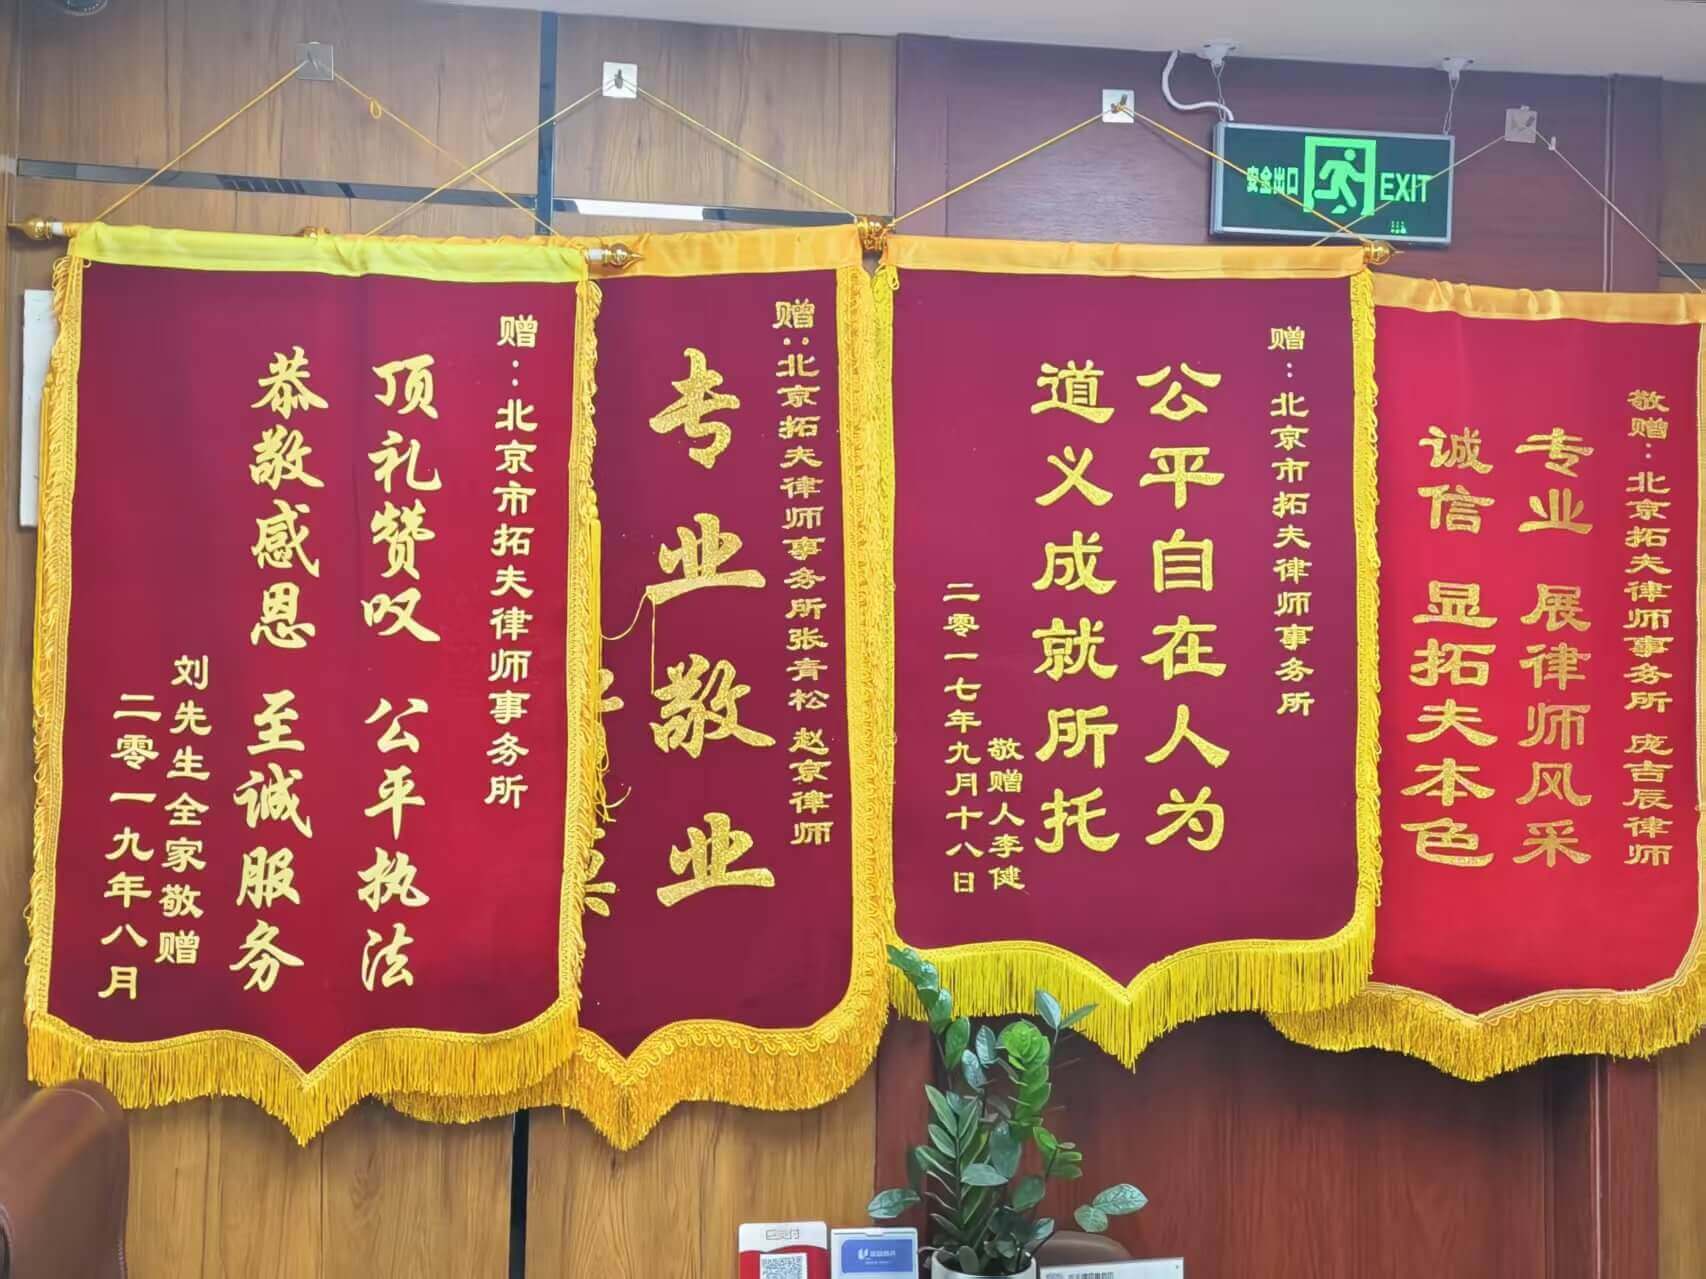 赠:北京市拓夫律师事务所
顶礼赞叹 公平执法
恭敬感恩 至诚服务
刘先生全家敬赠
二零一九年八月
赠:北京拓夫律师事务所张青松 赵京律师
专业敬业
赠:北京市拓夫律师事务所
公平自在人为
道义成就所托
敬赠人李健
二零一七年九月十八日
敬赠:北京拓夫律师事务所 庞吉辰律师
专业 展律师风采
诚信 显拓夫本色
安全出口 EXIT